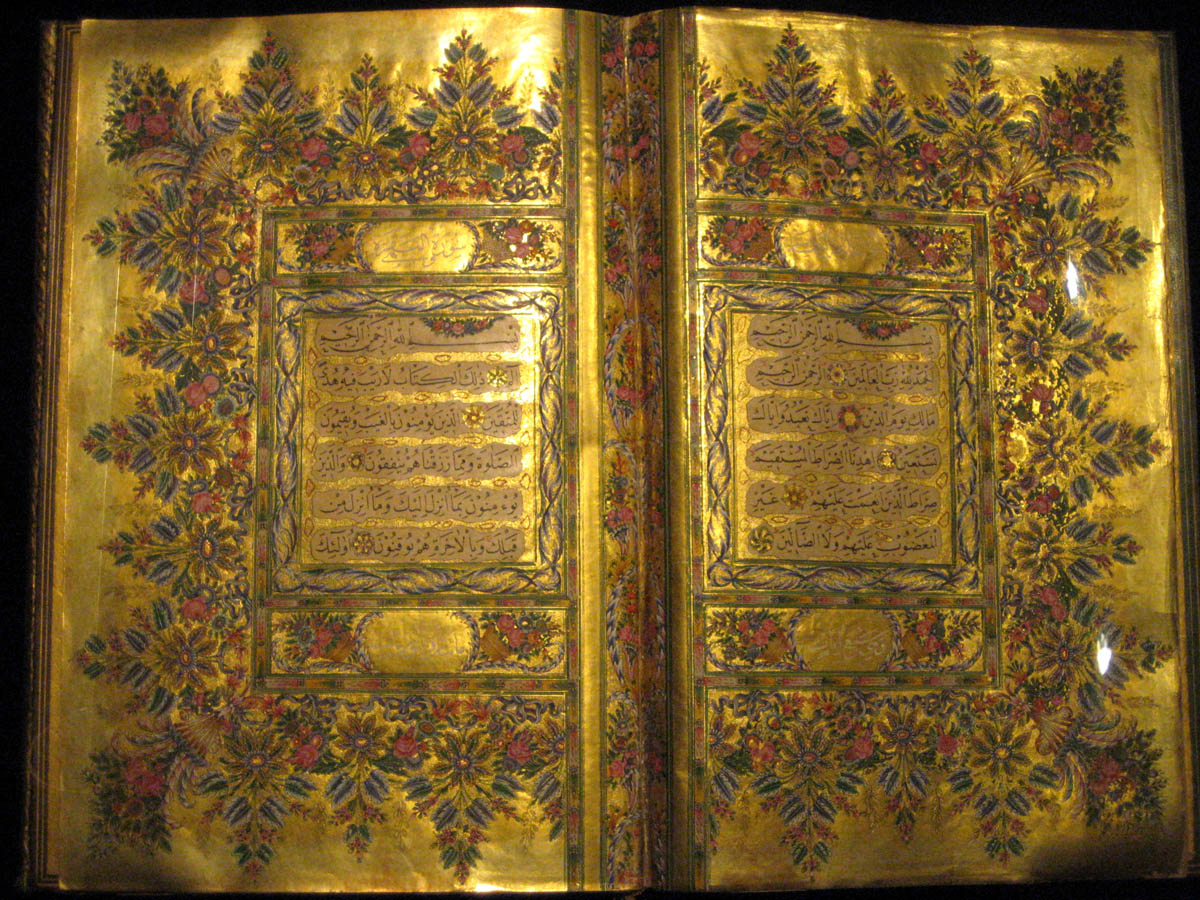 بِسْمِ اللهِ الرَّحْمٰنِ الرَّحِيمِ
اَلْحَمْدُ لِلّٰهِ رَبِّ الْعَالَمِينَ الرَّحْمٰنِ الرَّحِيمِ
مَالِكِ يَوْمِ الدِّينِ اِيَّاكَ نَعْبُدُ وَاِيَّاكَ
نَسْتَعِينُ اِهْدِنَا الصِّرَاطَ الْمُسْتَقِيمَ
صِرَاطَ الَّذِينَ اَنْعَمْتَ عَلَيْهِمْ غَيْرِ
الْمَغْضُوبِ عَلَيْهِمْ وَلَا الضَّالِّينَ
سورة
بِسْمِ اللهِ الرَّحْمٰنِ الرَّحِيمِ
الم ذٰلِكَ الْكِتَابُ لَا رَيْبَ فِيهِ هُدًى
لِلْمُتَّقِينَ الَّذِينَ يُؤْمِنُونَ بِالْغَيْبِ وَيُقِيمُونَ
الصَّلٰوةَ وَمِمَّا رَزَقْنَاهُمْ يُنْفِقُونَ وَالَّذِينَ
يُؤْمِنُونَ بِمَا اُنْزِلَ اِلَيْكَ وَمَا اُنْزِلَ مِنْ
قَبْلِكَ وَبِالْاٰخِرَةِ هُمْ يُوقِنُونَ اُولٰئِكَ